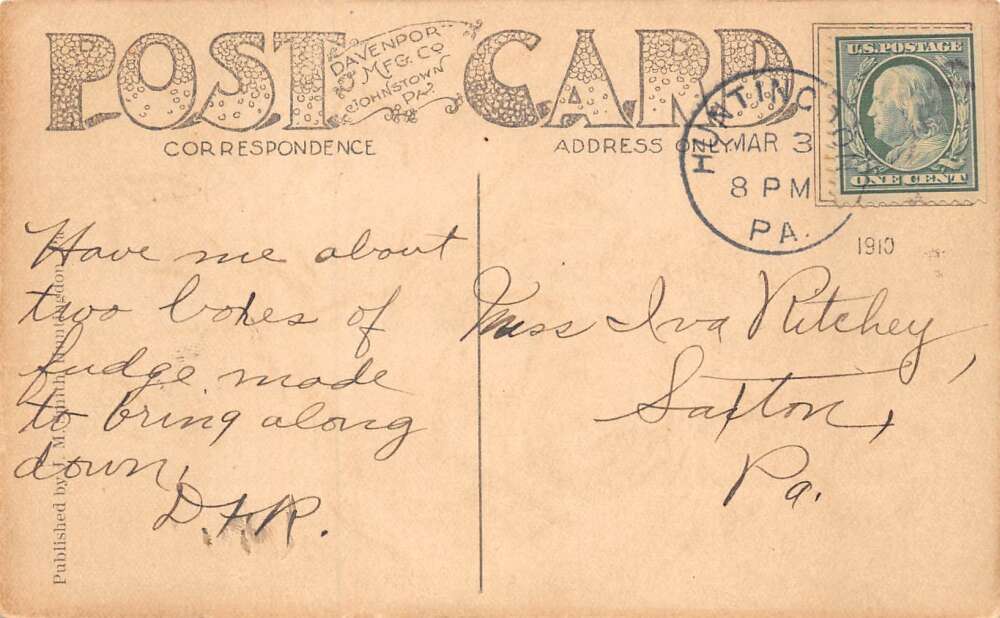 POST CARD
DAVENPORT
MFG. CO
JOHNSTOWN
PA.
CORRESPONDENCE
ADDRESS ONLY
U.S. POSTAGE
ONE CENT
HUNTINGDON
MAR 3
8 PM
PA.
1910
Have me about
two boxes of
fudge made
to bring along
down,
D.F.R.
Miss Iva Ritchey,
Saxton,
Pa.
Published by J. M. Smith, Huntingdon,